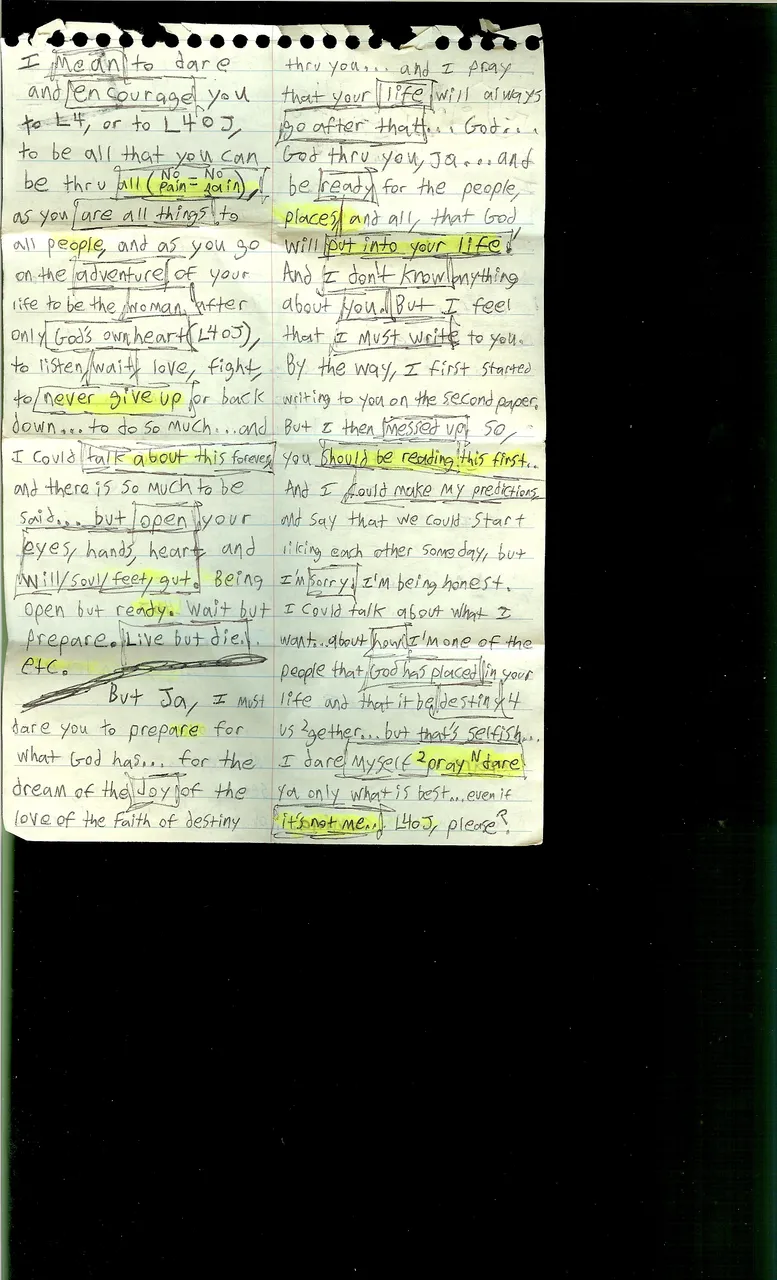 I mean to dare
and encourage you
to L4, or to L4OJ,
to be all that you can
be thru all (No Pain = No gain),
as you are all things to
all people, and as you go
on the adventure of your
life to be the woman after
only God's own heart (L4OJ),
to listen, wait, love, fight,
to never give up or back
down... to do so much... and
I could talk about this forever,
and there is so much to be
said... but open your
eyes, hands, heart and
will/soul/feet/gut. Being
open but ready. Wait but
prepare. Live but die.
etc.
But Ja, I must
dare you to prepare for
what God has... for the
dream of the Joy of the
love of the Faith of destiny
thru you... and I pray
that your life will always
go after that... God...
God thru you, Ja... and
be ready for the people,
places, and all, that God
will put into your life!
And I don't know anything
about you. But I feel
that I must write to you.
By the way, I first started
writing to you on the second paper.
But I then messed up so,
you should be reading this first...
And I could make my predictions
and say that we could start
liking each other someday, but
I'm sorry. I'm being honest.
I could talk about what I
want... about how I'm one of the
people that God has placed in your
life and that it be destiny 4
us 2gether... but that's selfish...
I dare myself 2 pray N dare
ya only what is best... even if
it's not me... L4OJ, please?